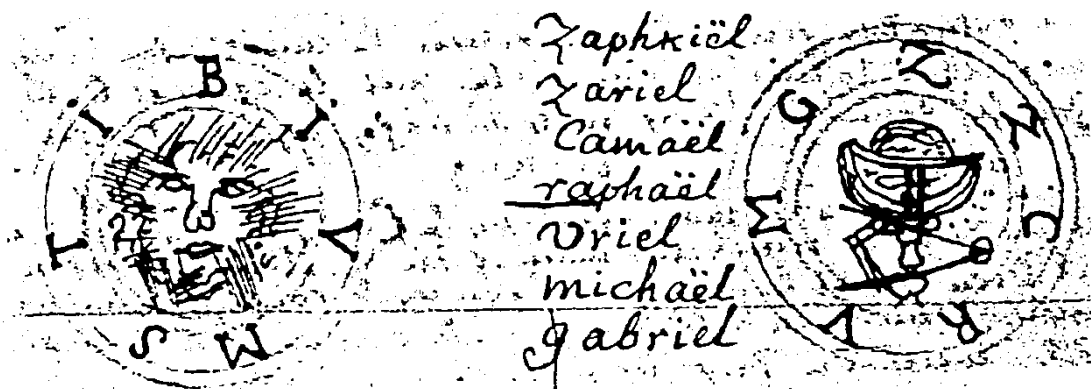 B I V M S I I
Zaphkiël
Zariel
Camaël
raphaël
Vriel
michaël
gabriel
Z Z C R V M G